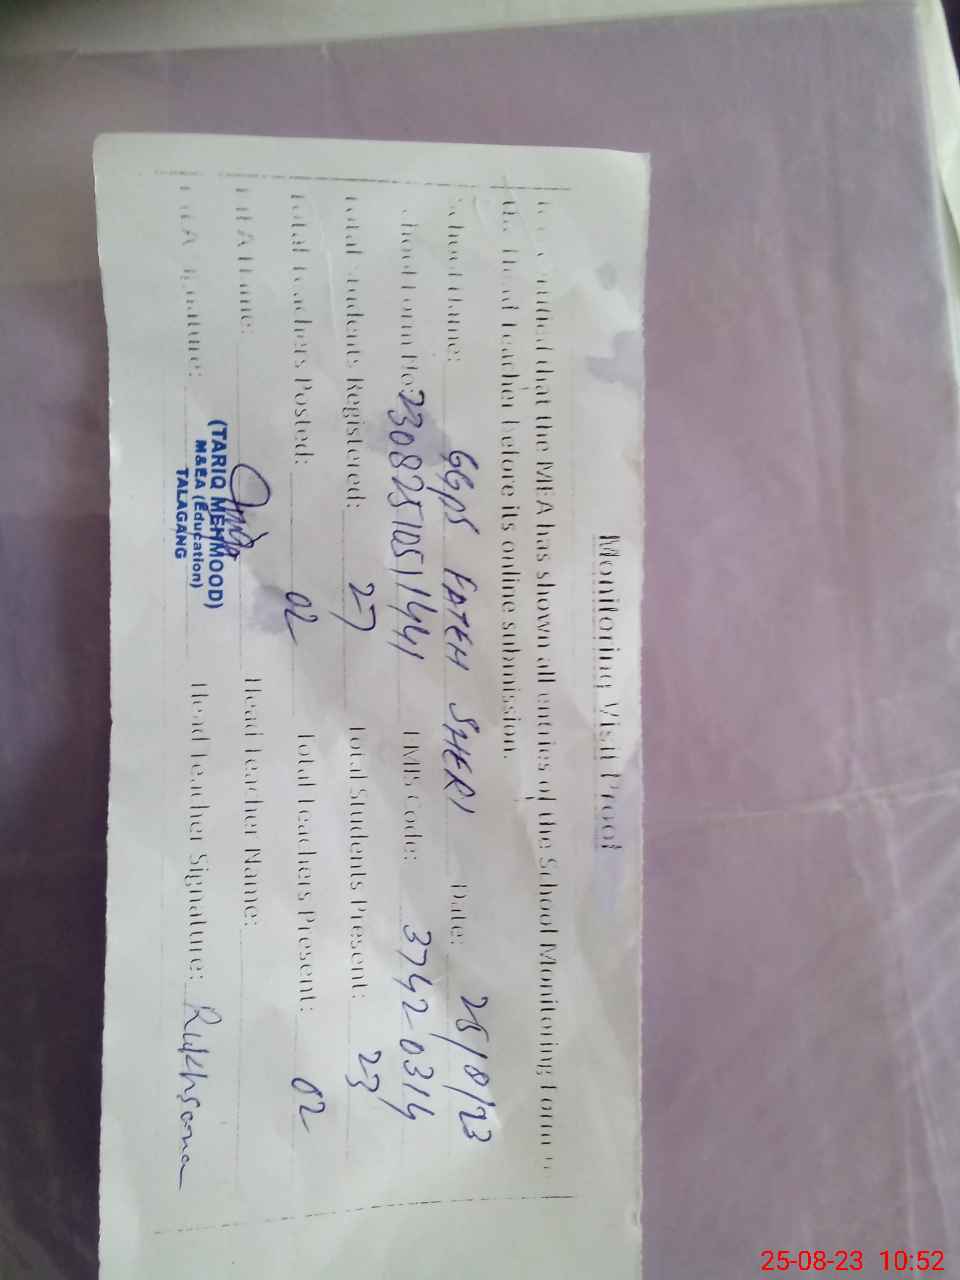 Monitoring Visit Proof
that the MEA has shown all entries of the School Monitoring Form
the Head Teacher before its online submission.
School Name: GGPS FATEH SHERI Date: 25/8/23
School Form No: 2308251051441 EMIS Code: 3742-0314
Total Students Registered: 27 Total Students Present: 23
Total Teachers Posted: 02 Total Teachers Present: 02
MEA Name: Head Teacher Name:
(TARIQ MEHMOOD)
M&EA (Education)
TALAGANG
MEA Signature: Head Teacher Signature: Rukhsana
25-08-23 10:52